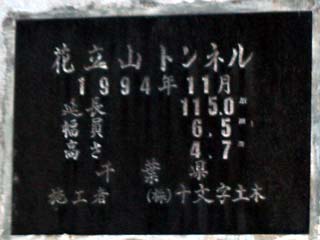 花立山トンネル
1994年11月
延長 115.0
幅員 6.5
高さ 4.7
千葉県
施工者 (株)千文字土木